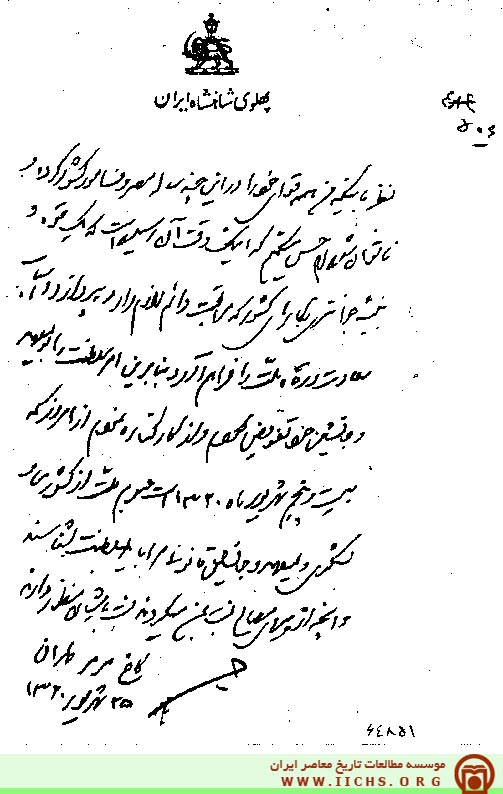 پهلوی شاهنشاه ایران
۵۰۶
نظر باینکه من همه قوای خود را در این چند سال مصروف امور کشور کرده و
ناتوان شده‌ام حس میکنم که اینک وقت آن رسیده است که یک قوه و
بنیه جوانتری بکارهای کشور که مراقبت دائم لازم دارد بپردازد و اسباب
سعادت و رفاه ملت را فراهم آورد بنابراین امور سلطنت را بولیعهد
و جانشین خود تفویض کردم و از کار کناره نمودم از امروز که
بیست و پنجم شهریور ماه ۱۳۲۰ است عموم ملت از کشوری و
لشکری ولیعهد و جانشین قانونی مرا باید بسلطنت بشناسند
و آنچه از پیروی مصالح نسبت بمن میکردند نسبت بایشان منظور دارند
کاخ مرمر طهران
۲۵ شهریور ۱۳۲۰
۶۴۸۵۱
موسسه مطالعات تاریخ معاصر ایران
WWW.IICHS.ORG